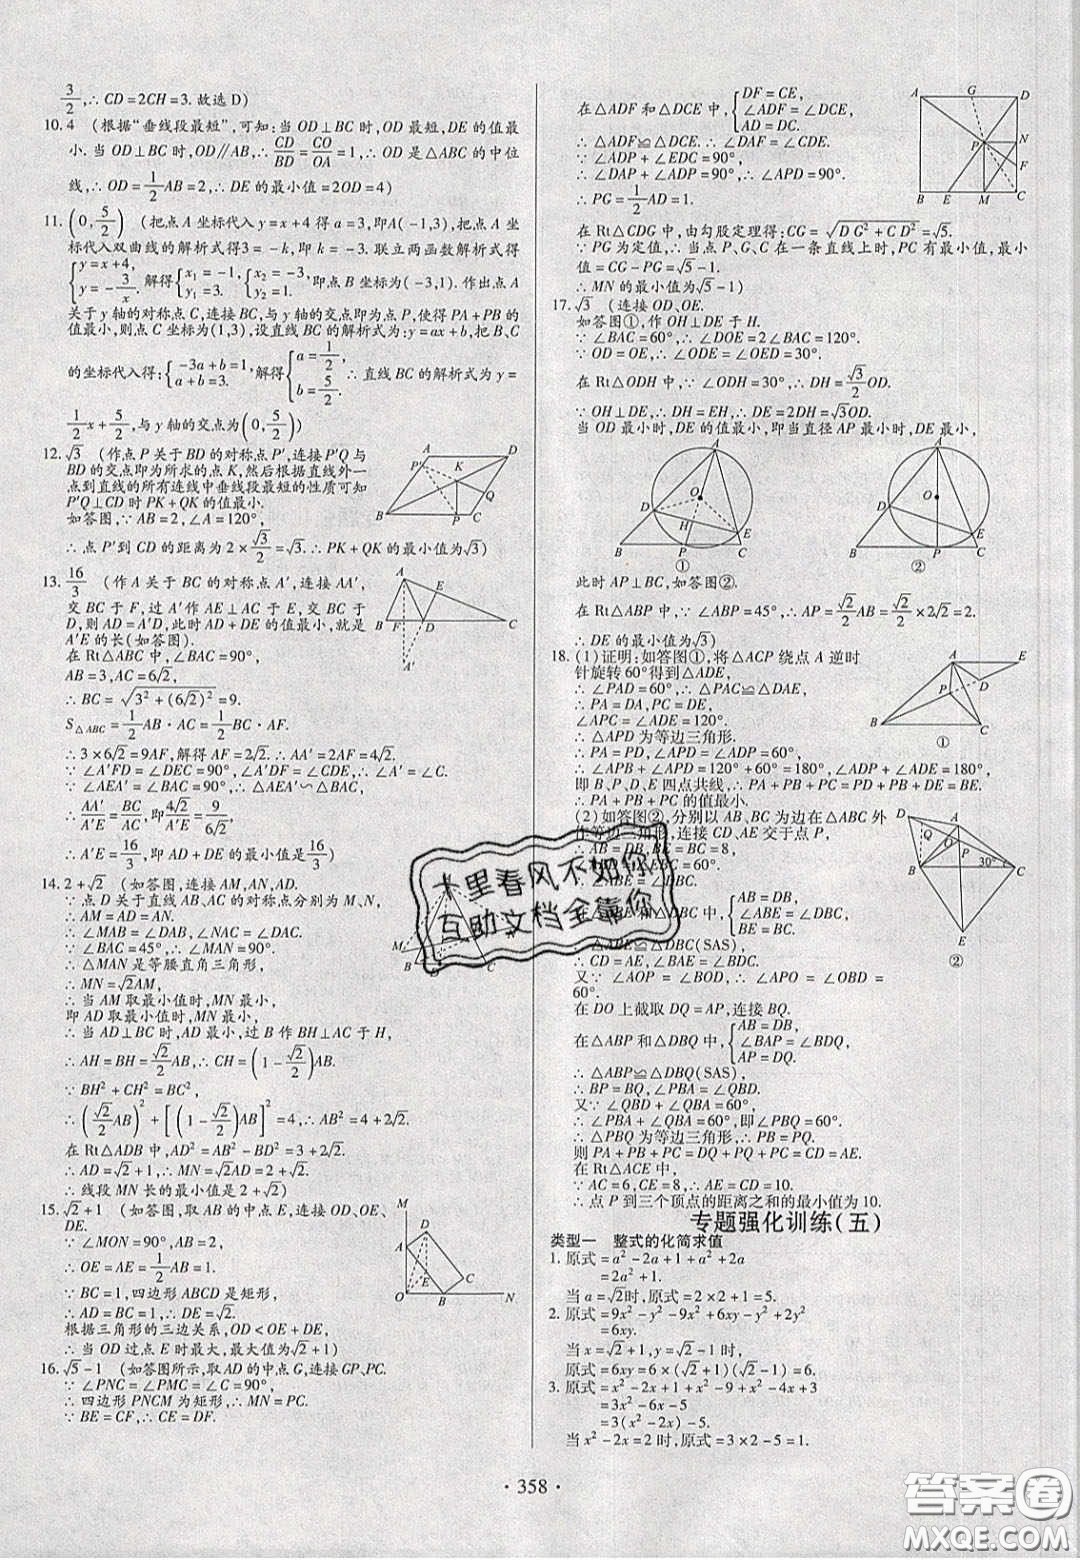 3/2,∴CD=2CH=3.故选D)
10.4 (根据“垂线段最短”,可知:当OD⊥BC时,OD最短,DE的值最
小.当OD⊥BC时,OD∥AB,∴CD/BD=CO/OA=1,∴OD是△ABC的中位
线,∴OD=1/2AB=2,∴DE的最小值=2OD=4)
11.(0,5/2) (把点A坐标代入y=x+4得a=3,即A(-1,3),把点A坐
标代入双曲线的解析式得3=-k,即k=-3.联立两函数解析式得
{y=x+4, y=-3/x. 解得{x₁=-1, y₁=3, {x₂=-3, y₂=1, 即点B坐标为(-3,1).作出点A
关于y轴的对称点C,连接BC,与y轴的交点即为点P,使得PA+PB的
值最小,则点C坐标为(1,3),设直线BC的解析式为:y=ax+b,把B、C
的坐标代入得:{-3a+b=1, a+b=3. 解得{a=1/2, b=5/2. ∴直线BC的解析式为y=
1/2x+5/2,与y轴的交点为(0,5/2))
12.√3 (作点P关于BD的对称点P′,连接P′Q与
BD的交点即为所求的点K,然后根据直线外一
点到直线的所有连线中垂线段最短的性质可知
P′Q⊥CD时PK+QK的值最小.
如答图,∵AB=2,∠A=120°,
∴点P′到CD的距离为2×√3/2=√3.∴PK+QK的最小值为√3)
13.16/3 (作A关于BC的对称点A′,连接AA′,
交BC于F,过A′作AE⊥AC于E,交BC于
D,则AD=A′D,此时AD+DE的值最小,就是
A′E的长(如答图).
在Rt△ABC中,∠BAC=90°,
AB=3,AC=6√2,
∴BC=√(3²+(6√2)²)=9.
S△ABC=1/2AB·AC=1/2BC·AF.
∴3×6√2=9AF,解得AF=2√2.∴AA′=2AF=4√2.
∵∠A′FD=∠DEC=90°,∠A′DF=∠CDE,∴∠A′=∠C.
∵∠AEA′=∠BAC=90°,∴△AEA′∽△BAC.
∴AA′/A′E=BC/AC,即4√2/A′E=9/6√2,
∴A′E=16/3,即AD+DE的最小值是16/3)
14.2+√2 (如答图,连接AM,AN,AD.
∵点D关于直线AB、AC的对称点分别为M、N,
∴∠MAB=∠DAB,∠NAC=∠DAC.
∵∠BAC=45°,∴∠MAN=90°.
∴△MAN是等腰直角三角形,
∴MN=√2AM,
∴当AM取最小值时,MN最小,
即AD取最小值时,MN最小.
∴当AD⊥BC时,AD最小,过B作BH⊥AC于H,
∴AH=BH=√2/2AB,∴CH=(1-√2/2)AB.
∵BH²+CH²=BC²,
∴(√2/2AB)²+[(1-√2/2)AB]²=4,∴AB²=4+2√2.
在Rt△ADB中,AD²=AB²-BD²=3+2√2.
∴AD=√2+1,∴MN=√2AD=2+√2.
∴线段MN长的最小值是2+√2)
15.√2+1 (如答图,取AB的中点E,连接OD、OE、
DE.
∵∠MON=90°,
∴OE=AE=1/2AB=1.
∵BC=1,四边形ABCD是矩形,
∴AD=BC=1,∴DE=√2.
根据三角形的三边关系,OD<OE+DE,
∴当OD过点E时最大,最大值为√2+1)
16.√5-1 (如答图所示,取AD的中点G,连接GP、PC.
∵∠PNC=∠PMC=∠C=90°,
∴四边形PNCM为矩形,∴MN=PC.
∵BE=CF,∴CE=DF.
在△ADF和△DCE中,{DF=CE, ∠ADF=∠DCE, AD=DC.
∴△ADF≌△DCE.∴∠DAF=∠CDE.
∵∠ADP+∠EDC=90°,
∴∠DAP+∠ADP=90°,∴∠APD=90°.
∴PG=1/2AD=1.
在Rt△CDG中,由勾股定理得:CG=√(DG²+CD²)=√5.
∵PG为定值,∴当点P、G、C在一条直线上时,PC有最小值,
最小值=CG-PG=√5-1.
∴MN的最小值为√5-1)
17.√3 (连接OD、OE.
如答图①,作OH⊥DE于H.
∵∠BAC=60°,∴∠DOE=2∠BAC=120°.
∵OD=OE,∴∠ODE=∠OED=30°.
在Rt△ODH中,∵∠ODH=30°,∴DH=√3/2OD.
∵OH⊥DE,∴DH=EH,∴DE=2DH=√3OD.
当OD最小时,DE的值最小,即当直径AP最小时,DE最小,
①
②
此时AP⊥BC,如答图②.
在Rt△ABP中,∵∠ABP=45°,∴AP=√2/2AB=√2/2×2√2=2.
∴DE的最小值为√3)
18.(1)证明:如答图①,将△ACP绕点A逆时
针旋转60°得到△ADE,
∴∠PAD=60°,∴△PAC≌△DAE,
∴PA=DA,PC=DE,
∠APC=∠ADE=120°.
∴△APD为等边三角形.
∴PA=PD,∠APD=∠ADP=60°,
∴∠APB+∠APD=120°+60°=180°,∠ADP+∠ADE=180°,
即B、P、D、E四点共线,∴PA+PB+PC=PD+PB+DE=BE.
∴PA+PB+PC的值最小.
①
(2)如答图②,分别以AB、BC为边在△ABC外
作等边三角形,连接CD、AE交于点P,
∴AB=DB,BE=BC=8,
∠ABD=∠EBC=60°.
∴∠ABE=∠DBC.
在△ABE和△DBC中,{AB=DB, ∠ABE=∠DBC, BE=BC.
∴△ABE≌△DBC(SAS).
∴CD=AE,∠BAE=∠BDC.
又∵∠AOP=∠BOD,∴∠APO=∠OBD=
60°.
②
在DO上截取DQ=AP,连接BQ.
在△ABP和△DBQ中,{AB=DB, ∠BAP=∠BDQ, AP=DQ.
∴△ABP≌△DBQ(SAS).
∴BP=BQ,∠PBA=∠QBD.
又∵∠QBD+∠QBA=60°,
∴∠PBA+∠QBA=60°,即∠PBQ=60°.
∴△PBQ为等边三角形,∴PB=PQ.
则PA+PB+PC=DQ+PQ+PC=CD=AE.
在Rt△ACE中,
∵AC=6,CE=8,∴AE=CD=10.
∴点P到三个顶点的距离之和的最小值为10.
专题强化训练(五)
类型一 整式的化简求值
1.原式=a²-2a+1+a²+2a
=2a²+1.
当a=√2时,原式=2×2+1=5.
2.原式=9x²-y²-9x²+6xy-y²+2y²
=6xy.
当x=√2+1,y=√2-1时,
原式=6xy=6×(√2+1)(√2-1)=6.
3.原式=x²-2x+1+x²-9+x²-4x+3
=3x²-6x-5
=3(x²-2x)-5.
当x²-2x=2时,原式=3×2-5=1.
·358·
十里春风不如你
互助文档全靠你
答案圈
MXQE.COM